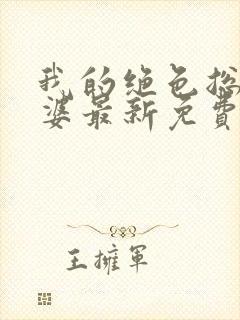 我的绝色总
婆最新免费
王擁軍